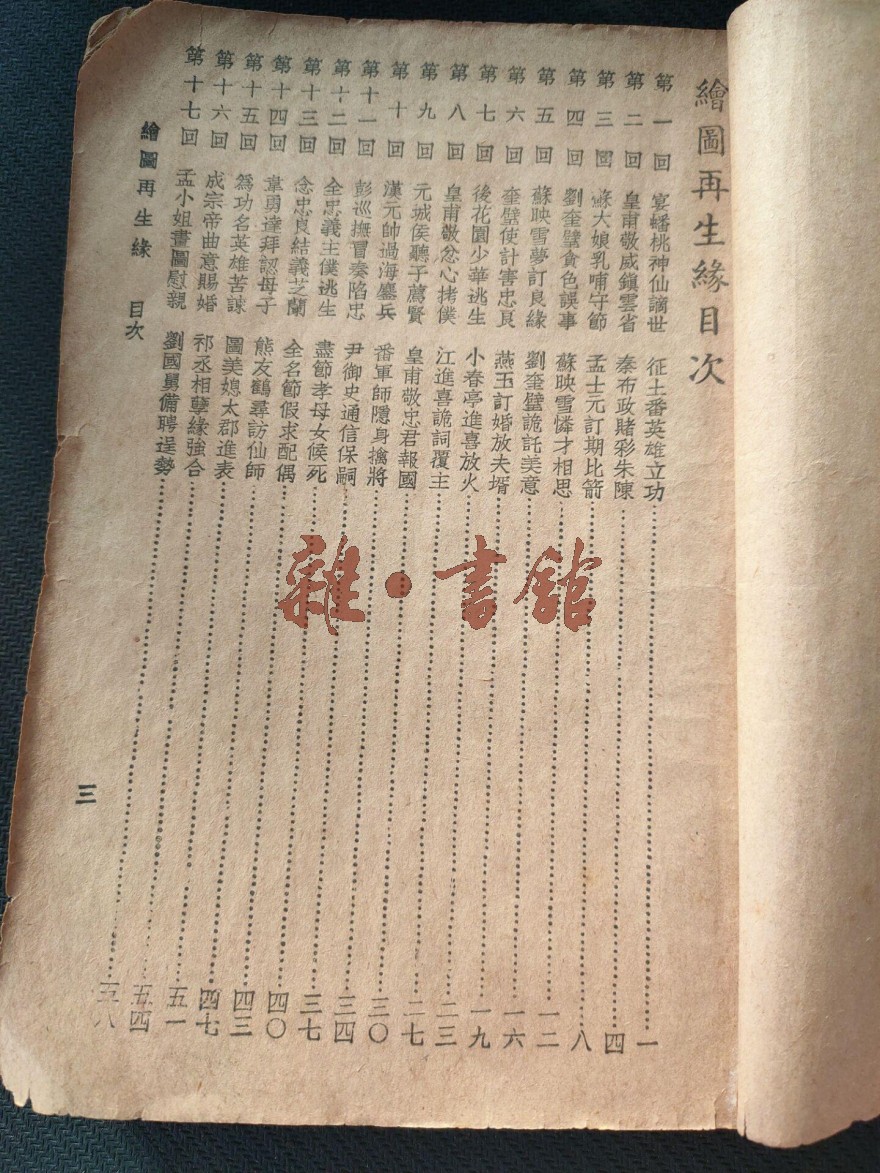 繪圖再生緣目次
第一回 宴蟠桃神仙謫世 征土番英雄立功 一
第二回 皇甫敬威鎭雲省 秦布政賭彩朱陳 四
第三回 蘇大娘乳哺守節 孟士元訂期比箭 八
第四回 劉奎璧貪色誤事 蘇映雪憐才相思 一二
第五回 蘇映雪夢訂良緣 劉奎璧詭託美意 一六
第六回 奎璧使計害忠良 燕玉訂婚放夫壻 一九
第七回 後花園少華逃生 小春亭進喜放火 二三
第八回 皇甫敬忿心拷僕 江進喜詭詞覆主 二七
第九回 元城侯聽子薦賢 皇甫敬忠君報國 三〇
第十回 漢元帥過海鏖兵 番軍師隱身擒將 三四
第十一回 彭巡撫冒奏陷忠 尹御史通信保嗣 三七
第十二回 全忠義主僕逃生 盡節孝母女候死 四〇
第十三回 念忠良結義芝蘭 全名節假求配偶 四三
第十四回 韋勇達拜認母子 熊友鶴尋訪仙師 四七
第十五回 爲功名英雄苦諫 圖美媳太郡進表 五一
第十六回 成宗帝曲意賜婚 祁丞相孽緣強合 五四
第十七回 孟小姐畫圖慰親 劉國舅備聘逞勢 五八
繪圖再生緣 目次
三
雜·書館